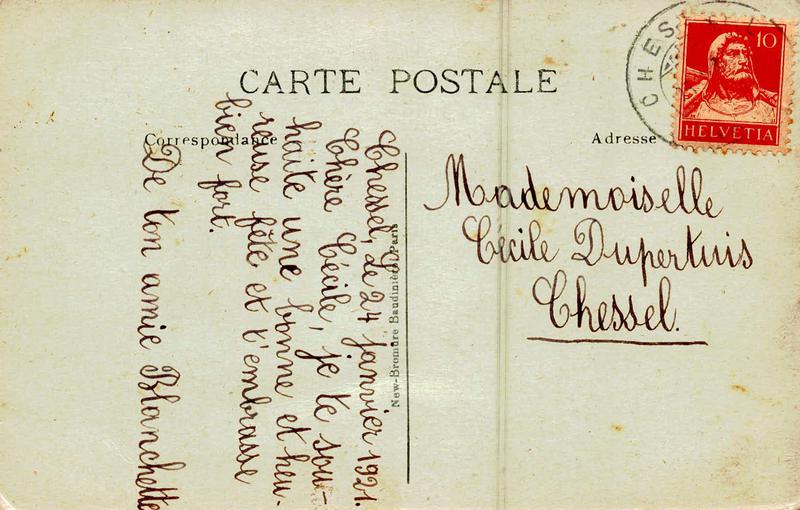 CARTE POSTALE
Correspondance
Adresse
CHES
10
HELVETIA
Chessel, le 24 janvier 1921.
Chère Cécile, je te sou-
haite une bonne et heu-
reuse fête et t'embrasse
bien fort.
De ton amie Blanchette
New-Bromure Baudinière, Paris
Mademoiselle
Cécile Dupertuis
Chessel.